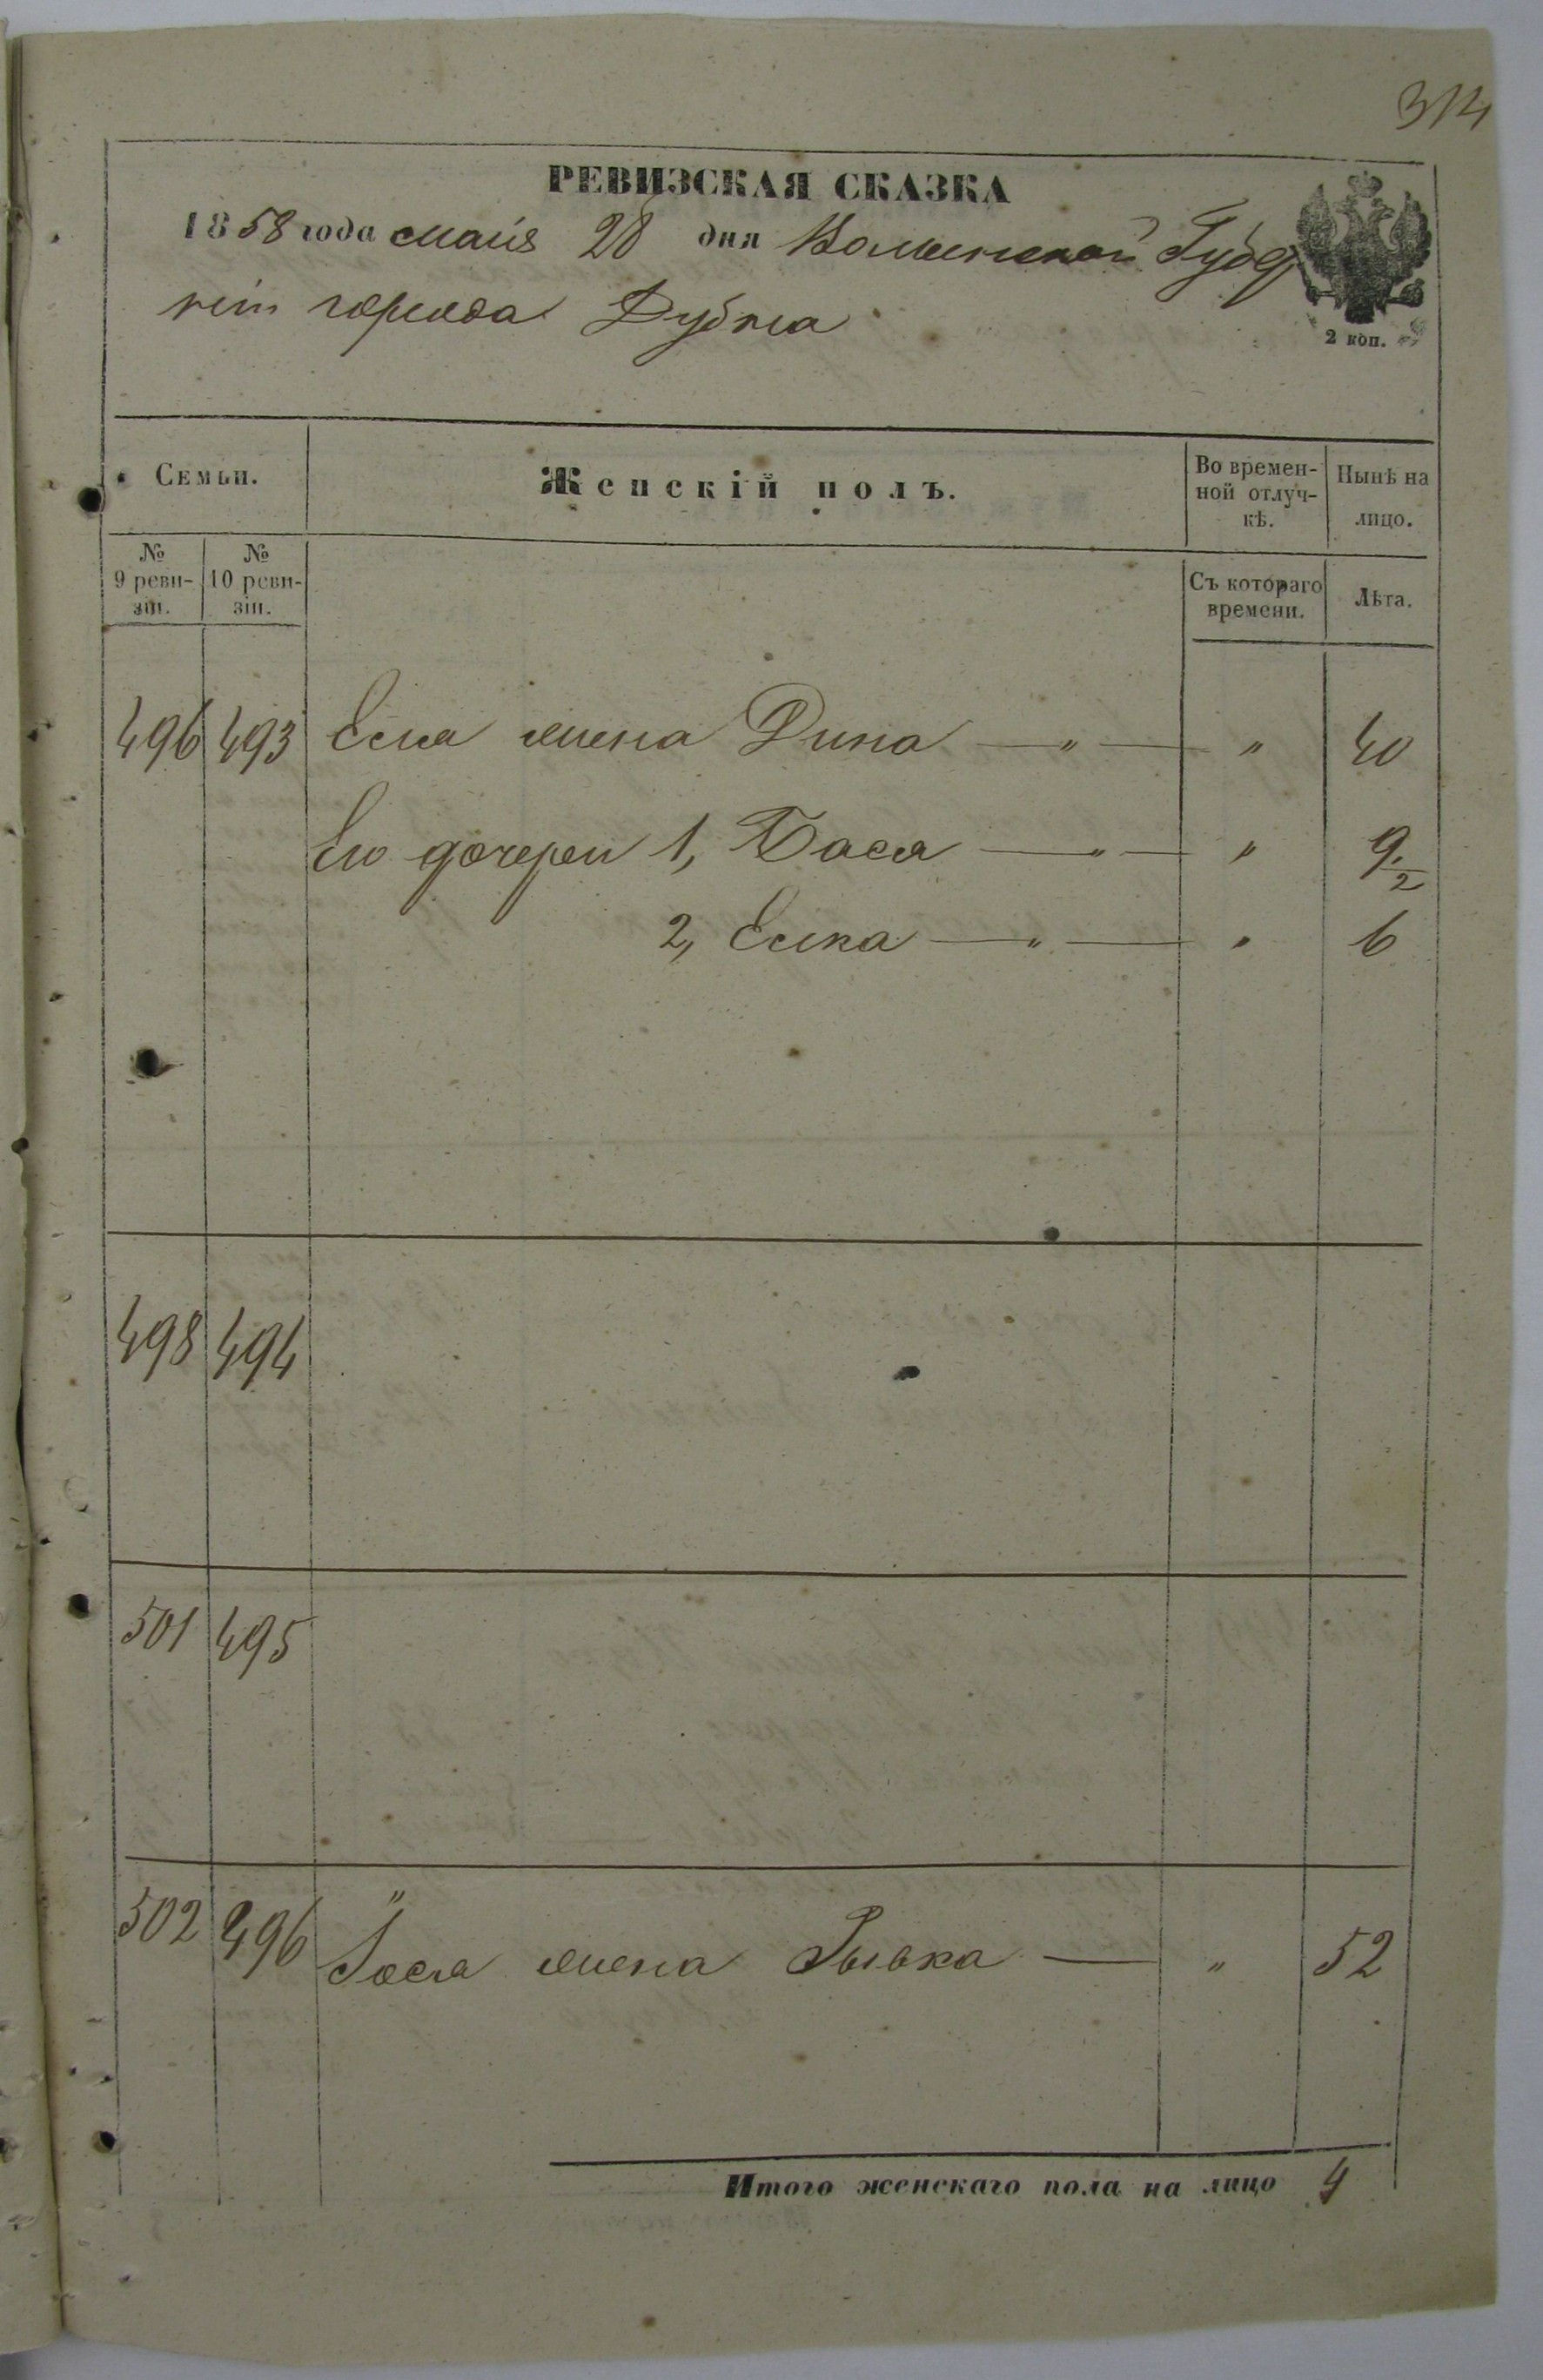 314
РЕВИЗСКАЯ СКАЗКА
1858 года мая 28 дня Волынской Губер
нiи города Дубна
2 коп.
Семьи.
Женскiй полъ.
Во времен-
ной отлуч-
кѣ.
Нынѣ на
лицо.
№
9 реви-
зiи.
№
10 реви-
зiи.
Съ котораго
времени.
Лѣта.
496 493 жена Дина — " — " 40
Его дочери 1, Бася — " — " 9 1/2
2, Елка — " — " 6
498 494
501 495
502 496 "
Іося жена Рывка — " 52
Итого женскаго пола на лицо 4